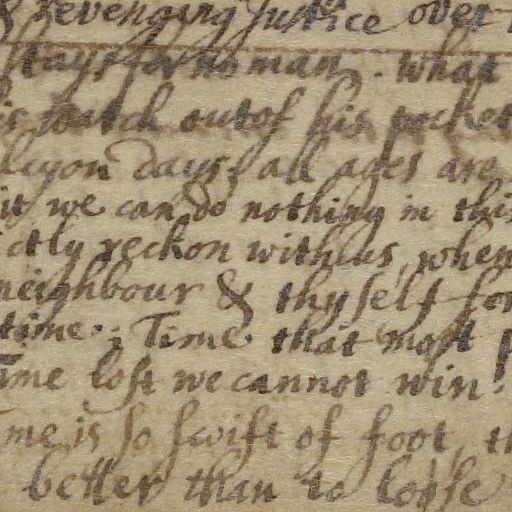 & Revenging Justice over
stays for no man. what
is watch out of his pocket
lcyon days, all ages are
it we can do nothing in this
ctly reckon with us, when
neighbour & thy self for
time.; Time that most p
ime lost we cannot win.
me is so swift of foot, th
better than to loose